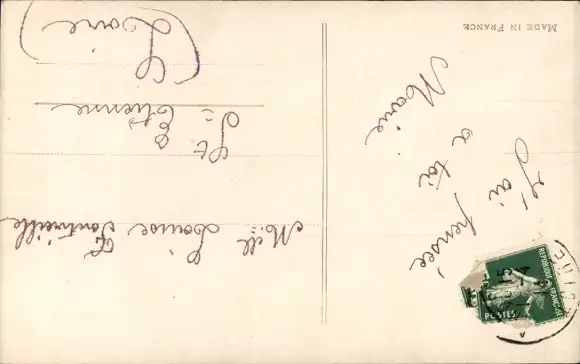 J'ai pensée
a toi
Marie
MADE IN FRANCE
Melle Louise
St Etienne
(Loire)
REPUBLIQUE FRANÇAISE
POSTES